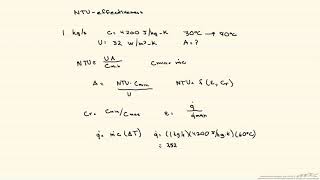 NTU-effectiveness
1 kg/s C= 4200 J/kg-K 30°C → 90°C
U= 32 W/m²-K A=?
NTU= UA/Cmin Cmin= ṁc
A = NTU·Cmin/U NTU= f (ε, Cr)
Cr= Cmin/Cmax ε= q̇/q̇max
q̇= ṁc (ΔT) q̇= (1kg/s)(4200 J/kg-K)(60°C)
= 252